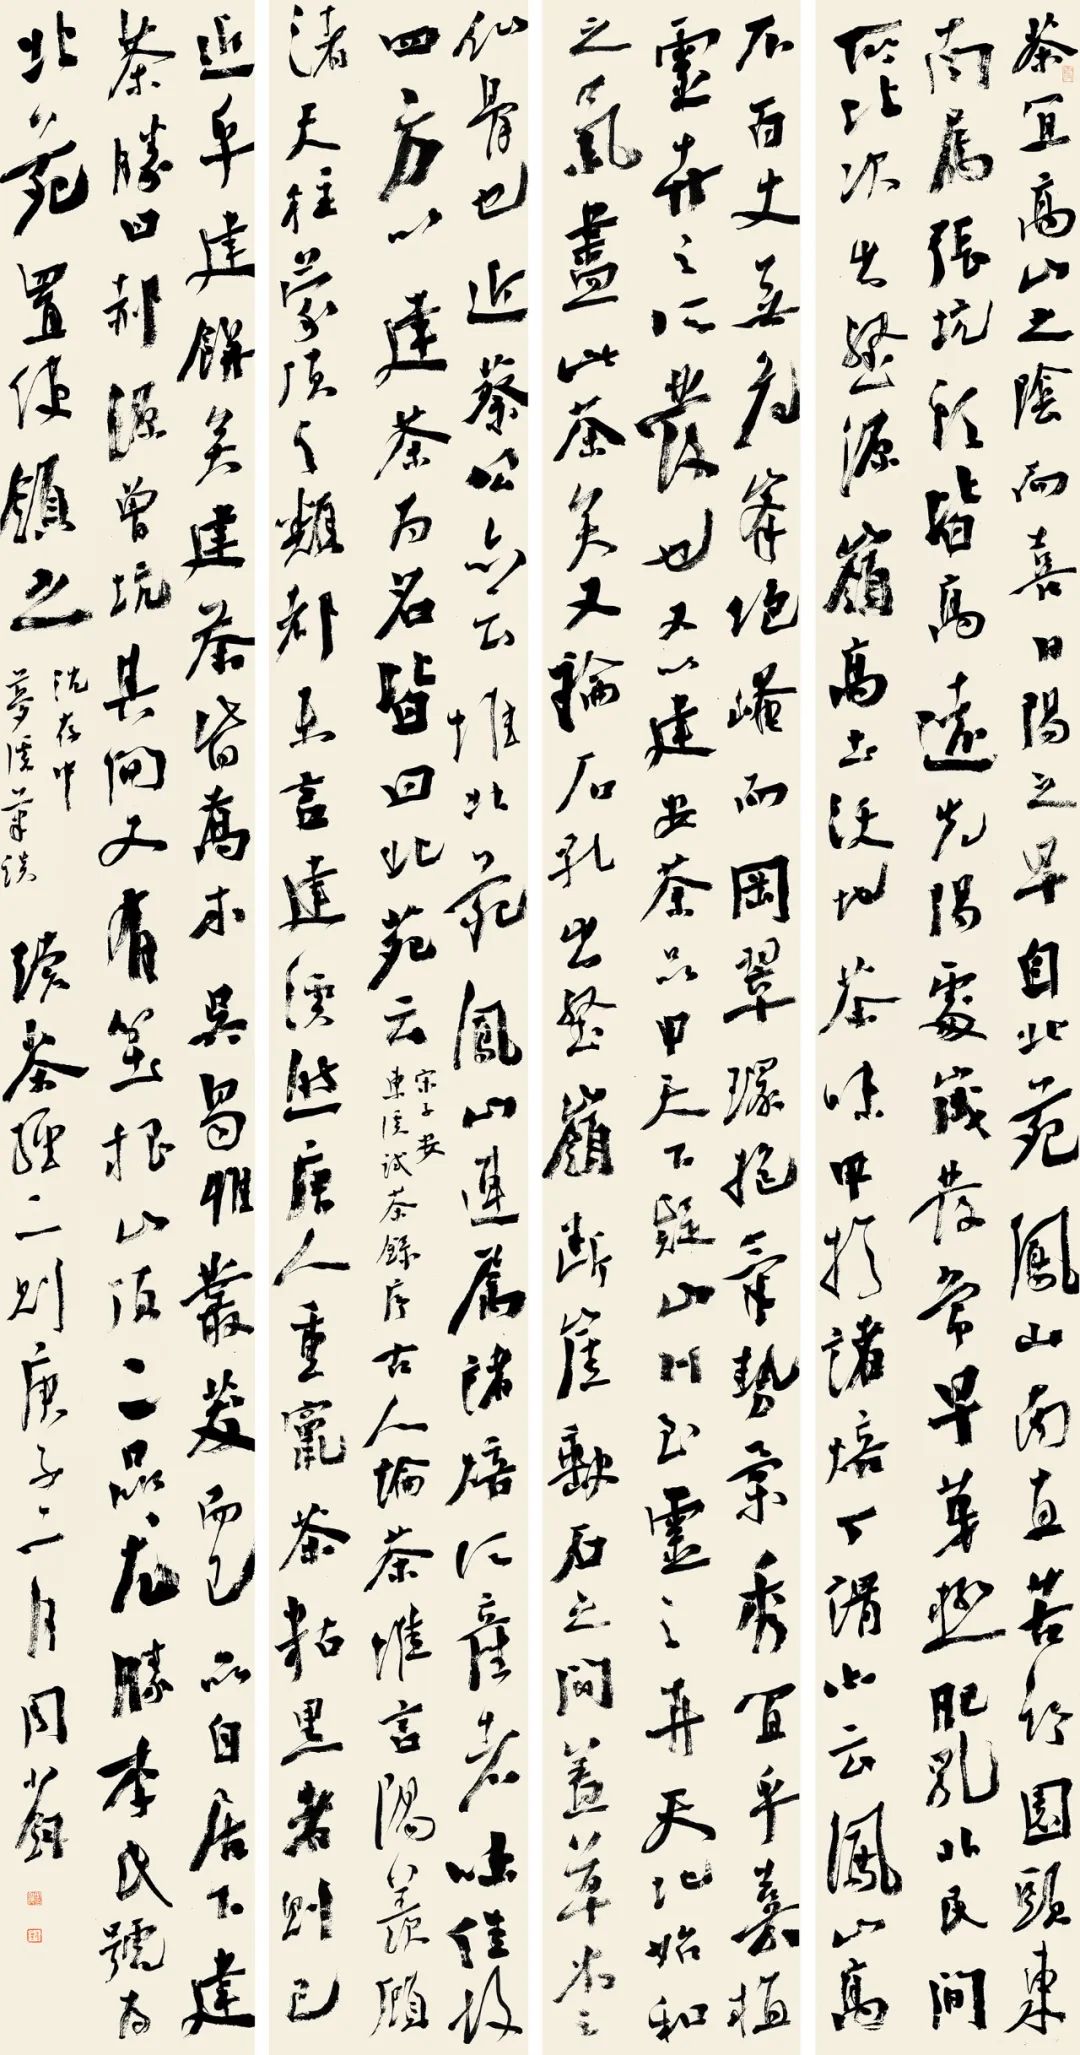 茶宜高山之陰而喜日陽之早自北苑鳳山南直苦竹園頭東
南屬張坑頭皆高遠先陽處歲發常早芽極肥乳非民間
所比次出壑源嶺高土沃地茶味甲於諸焙丁謂亦云鳳山高
不百丈無危峯絕崦而岡翠環抱氣勢柔秀宜乎嘉植
靈卉之所發也又以建安茶品甲天下疑山川至靈之卉天地始和
之氣盡此茶矣又論石乳出壑嶺斷崖缺石之間蓋草木之
仙骨也近蔡公亦云惟北苑鳳山連屬諸焙所產者味佳故
四方以建茶為名皆曰北苑云
宋子安
東溪試茶錄序
古人論茶惟言陽羨顧
渚天柱蒙頂之類都未言建溪然唐人重竄茶粘黑者則已
近乎建餅矣建茶皆喬木吳蜀惟叢茇而已品自居下建
茶勝曰郝源曾坑其間又有坌根山頂二品尤勝李氏號為
北苑置使領之
沈存中
夢溪筆談
續茶經二則庚子二月